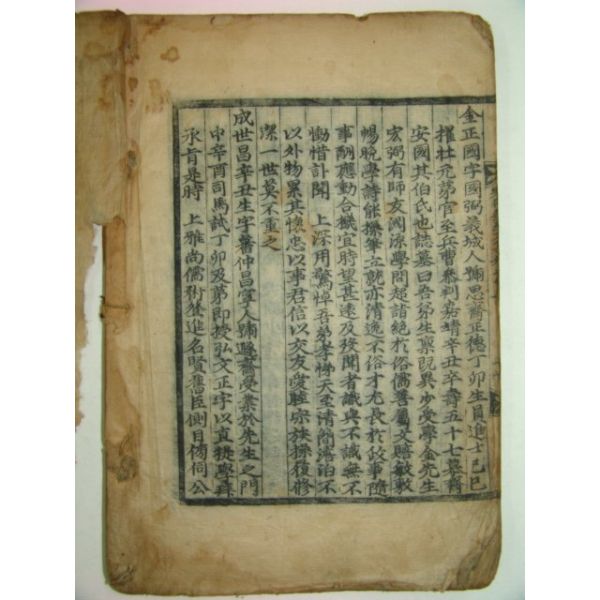 金正國字國弼義城人號思齋正德丁卯生員進士己巳
擢壯元第官至兵曹參判嘉靖辛丑卒壽五十七慕齋
安國其伯氏也誌墓曰吾弟生稟旣異少受學金先生
宏弼有師友淵源學問超詣絶於俗儒善屬文贍敏敷
暢晩學詩能操筆立就亦淸逸不俗才尤長於政事隨
事酬應動合機宜時望甚遠及歿聞者識與不識無不
慟惜訃聞 上深用驚悼吾弟孝悌天至淸簡淡泊不
以外物累其懷忠以事君信以交友愛睦宗族操履修
潔一世莫不重之
成世昌辛丑生字蕃仲昌寧人號遯齋受業於先生之門
中辛酉司馬試丁卯及第卽授弘文正字以直提學拜
承旨是時 上雅尚儒術後進名賢舊臣側目倚伺公